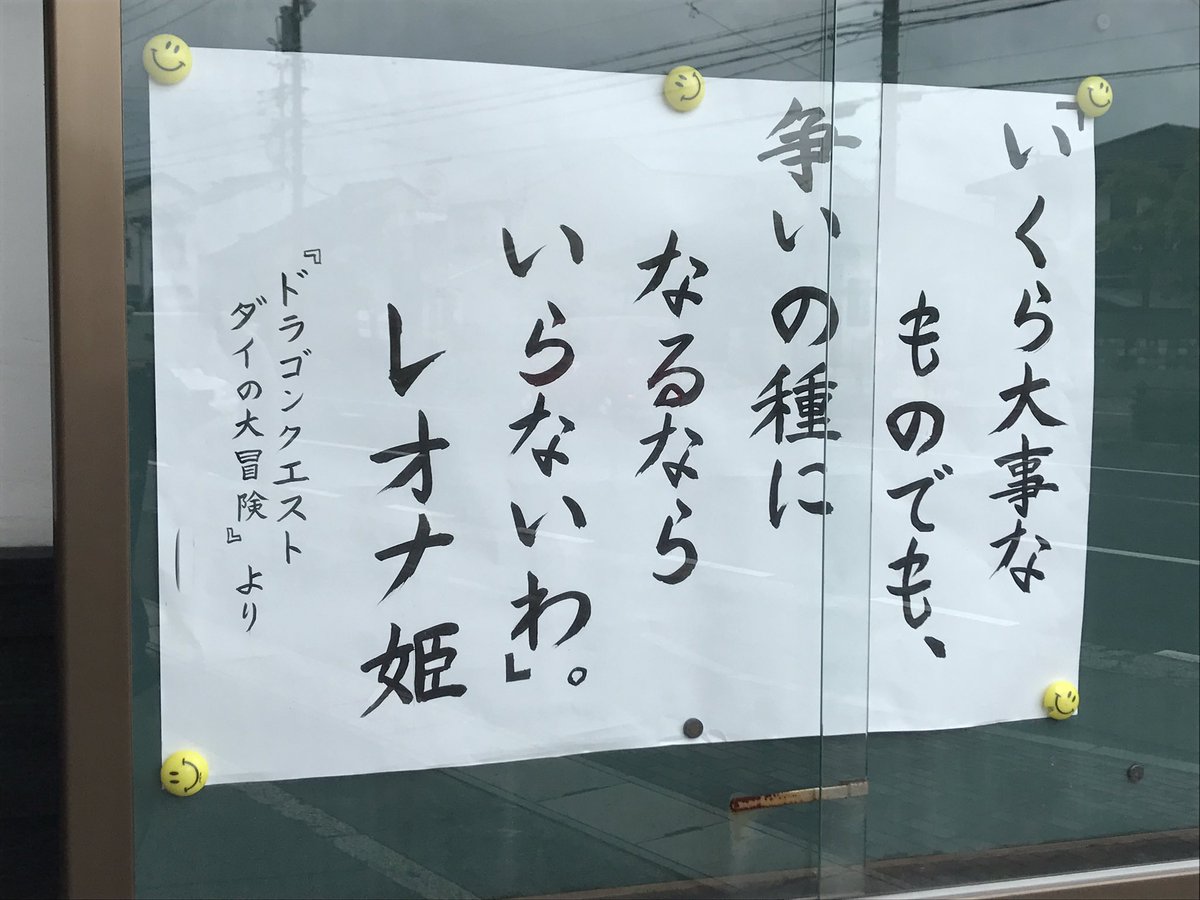 「いくら大事な
ものでも、
争いの種に
なるなら
いらないわ」。
レオナ姫
『ドラゴンクエスト
ダイの大冒険』より